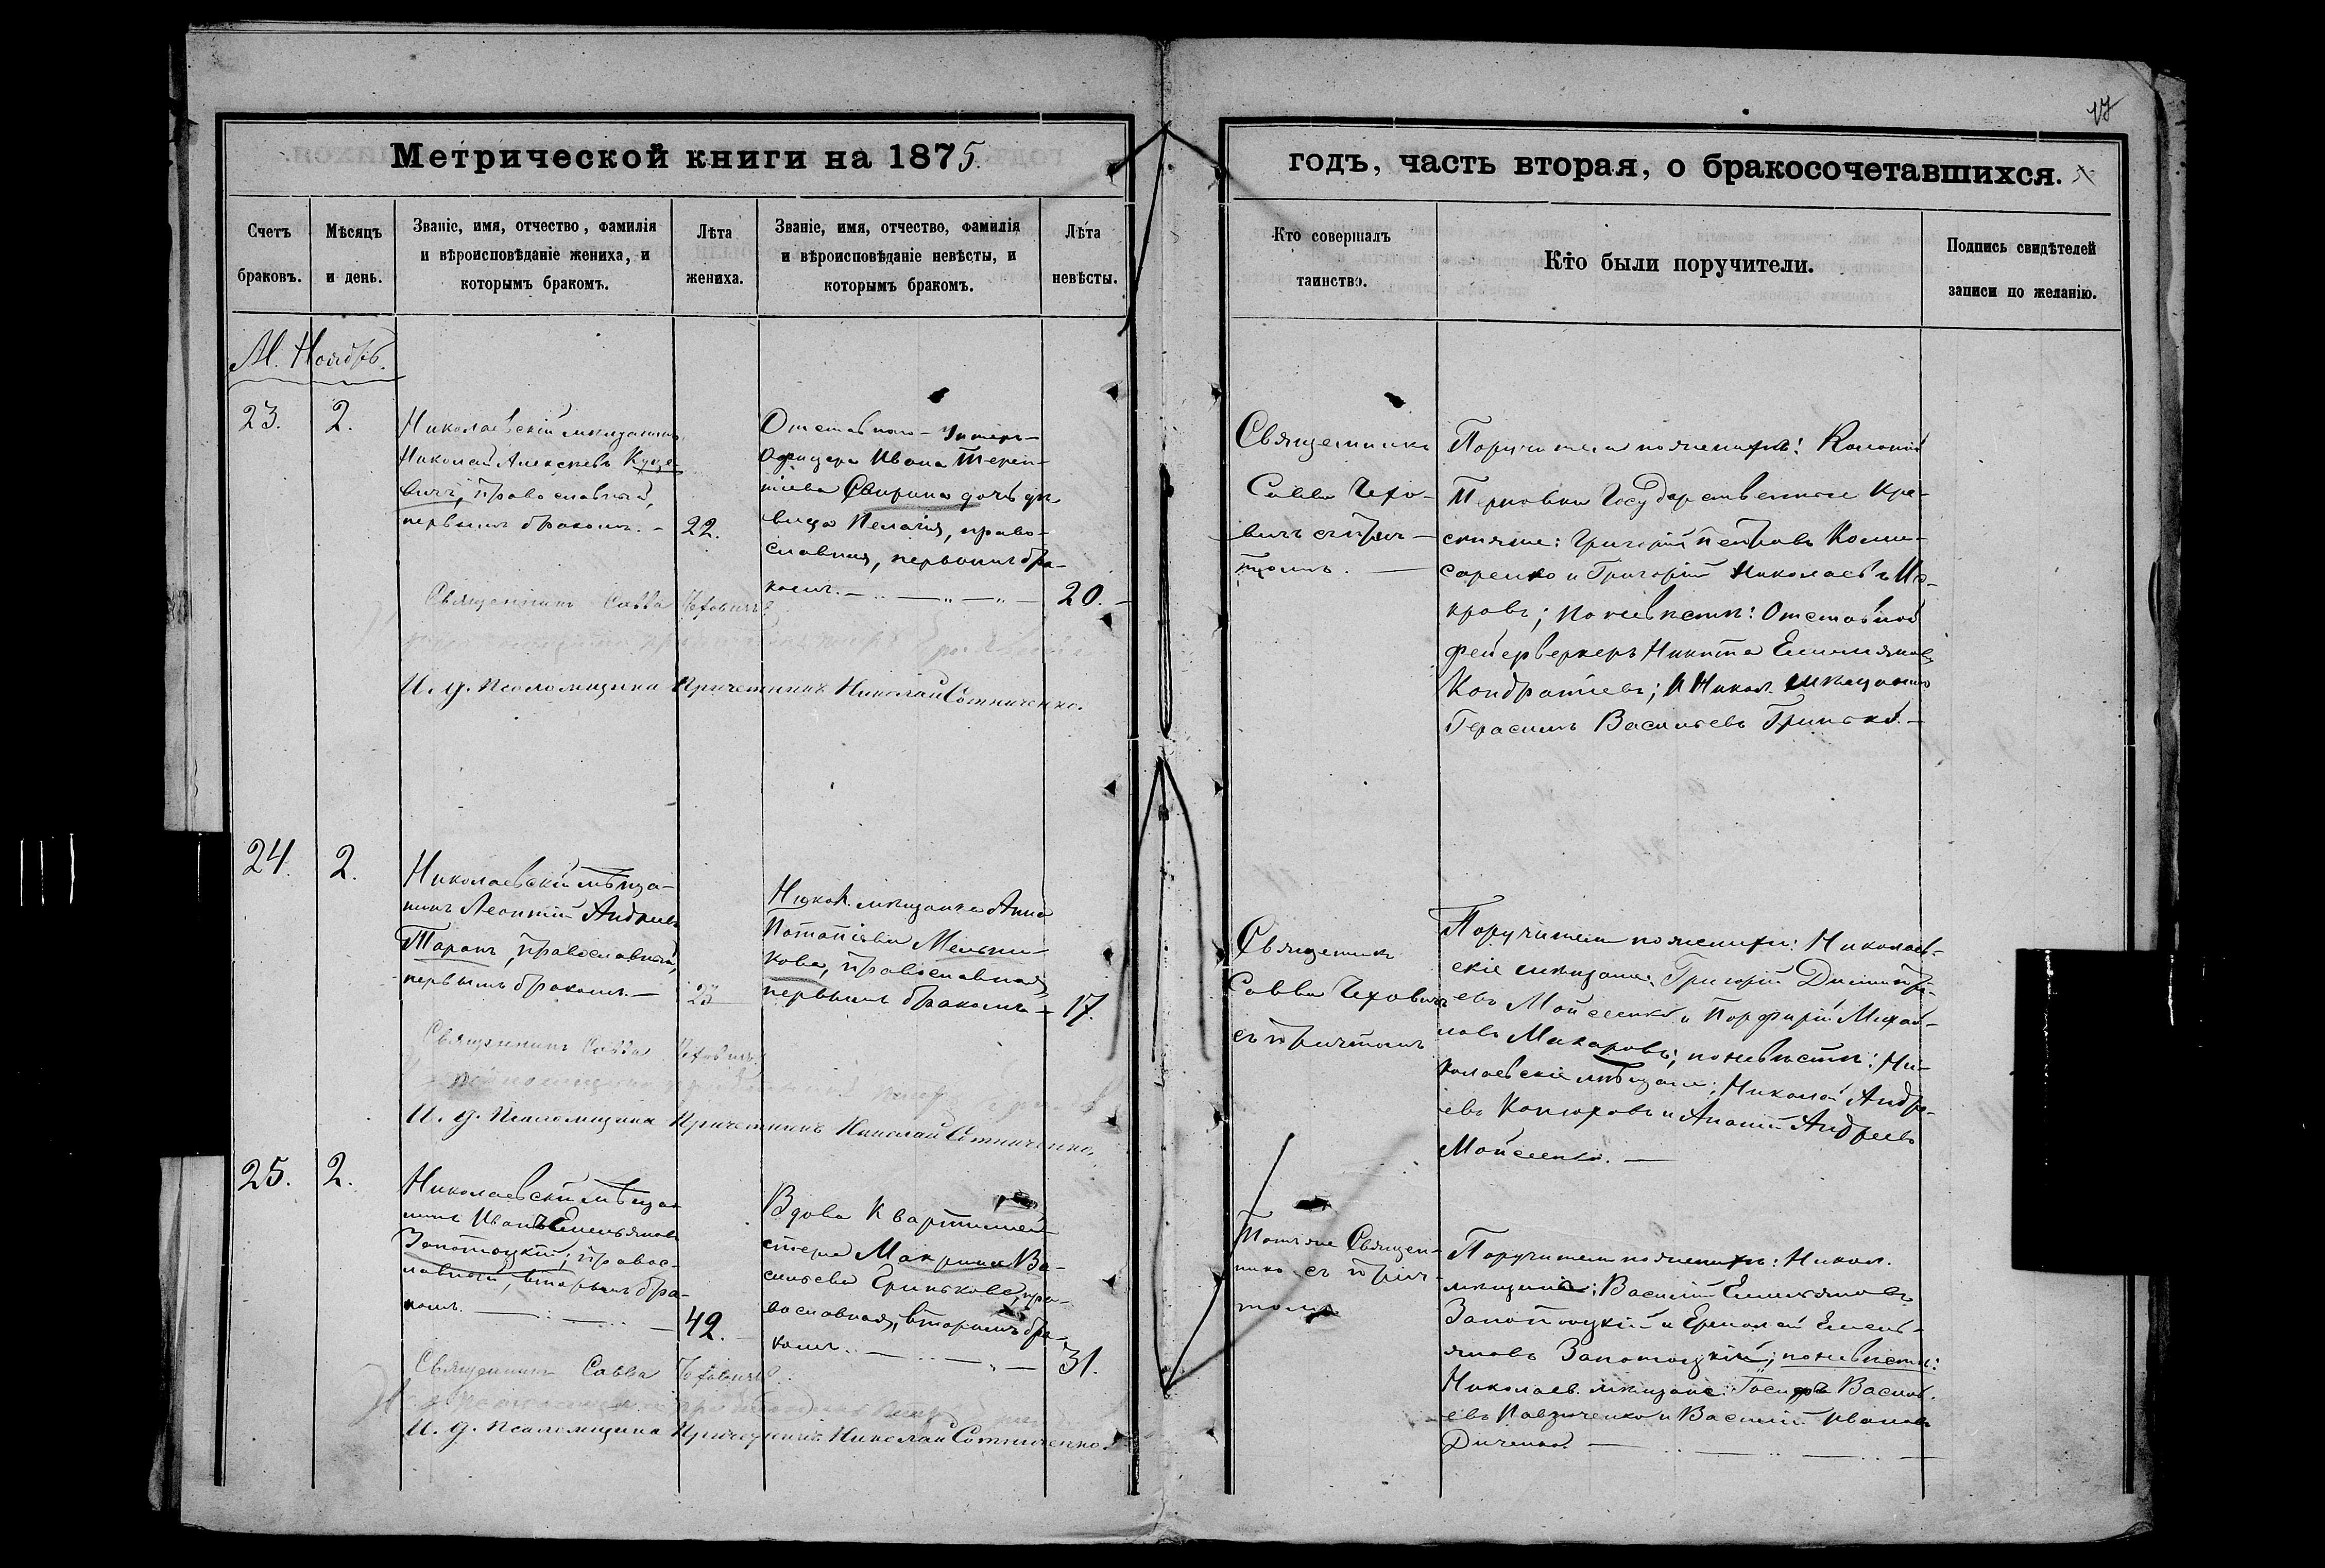 17
Метрической книги на 1875.
годъ, часть вторая, о бракосочетавшихся.
Счетъ
браковъ.
Мѣсяцъ
и день.
Званіе, имя, отчество, фамилія
и вѣроисповѣданіе жениха, и
которымъ бракомъ.
Лѣта
жениха.
Званіе, имя, отчество, фамилія
и вѣроисповѣданіе невѣсты, и
которымъ бракомъ.
Лѣта
невѣсты.
Кто совершалъ
таинство.
Кто были поручители.
Подпись свидѣтелей
записи по желанію.
М. Ноябрь.
23.
2.
Николаевскій мѣщанинъ
Николай Алексѣевъ Куце-
вичъ, православный,
первымъ бракомъ. –
22.
Отставного Унтеръ-
Офицера Ивана Терен-
тіева Свирина дочь дѣ-
вица Пелагія, право-
славная, первымъ бра-
комъ.
20.
Священникъ
Савва Чехо-
вичъ съ прич-
томъ.
Поручители по женихѣ:
Терновки Государственные Кре-
стьяне: Григорій Петровъ Коми-
саренко и Григорій Николаевъ
по невѣстѣ: Отставной
фейерверкеръ Никита Емельяновъ
Кондратьевъ; и Никол. мѣщанинъ
Герасимъ Васильевъ Гринько.
Священникъ Савва Чеховичъ
И. д. Псаломщика Причетникъ Николай Сотниченко.
24.
2.
Николаевскій мѣща-
нинъ Леонтій Андреевъ
Таранъ, православный,
первымъ бракомъ. –
23
Никол. мѣщанка Анна
Потапіева Мельни-
кова, православная,
первымъ бракомъ –
17.
Священникъ
Савва Чеховичъ
съ причтомъ
Поручители по женихѣ: Николаев-
скіе мѣщане: Григорій Димитрі-
евъ Мойсеенко и Порфирій Михай-
ловъ Макаровъ; по невѣстѣ: Ни-
колаевскіе мѣщане: Николай Андре-
евъ и Ананій Андреевъ
Мойсеенко. –
Священникъ Савва Чеховичъ
И. д. Псаломщика Причетникъ Николай Сотниченко.
25.
2.
Николаевскій мѣща-
нинъ Иванъ Емельяновъ
Запотоцкій, правос-
лавный, вторымъ бра-
комъ.
42.
Вдова Квартирмей-
стера Макрина Ва-
сильева Гринькова, пра-
вославная, вторымъ бра-
комъ.
31.
Тотъ же Священ-
никъ съ прич-
томъ
Поручители по женихѣ: Никол.
мѣщане: Василій Емельяновъ
Запотоцкій и Ермолай Емель-
яновъ Запотоцкій; по невѣстѣ:
Николаев. мѣщане: Василь-
евъ и Василій Ивановъ
Диченко.
Священникъ Савва Чеховичъ
И. д. Псаломщика Причетникъ Николай Сотниченко.